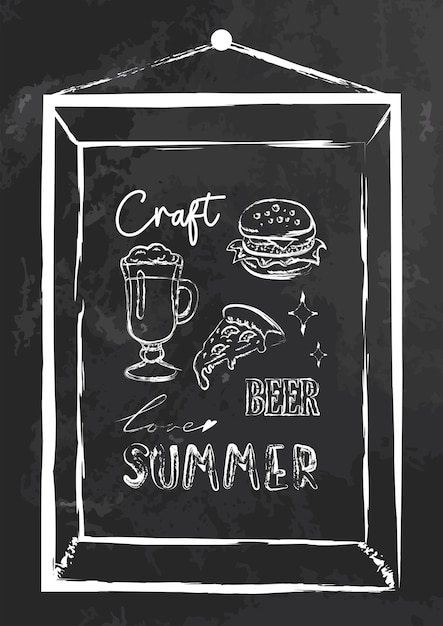 Craft
BEER
love
SUMMER